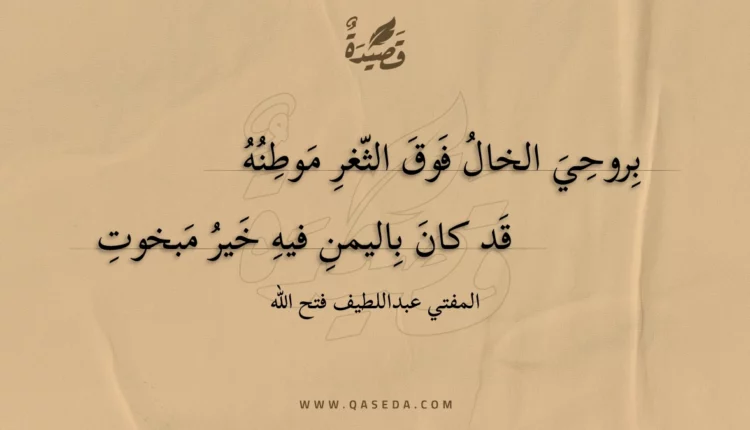 قَصِيدَةٌ
بِروحِيَ الخالُ فَوقَ الثّغرِ مَوطِنُهُ
قَد كانَ بِاليمنِ فيهِ خَيرُ مَبخوتِ
المفتي عبداللطيف فتح الله
WWW.QASEDA.COM